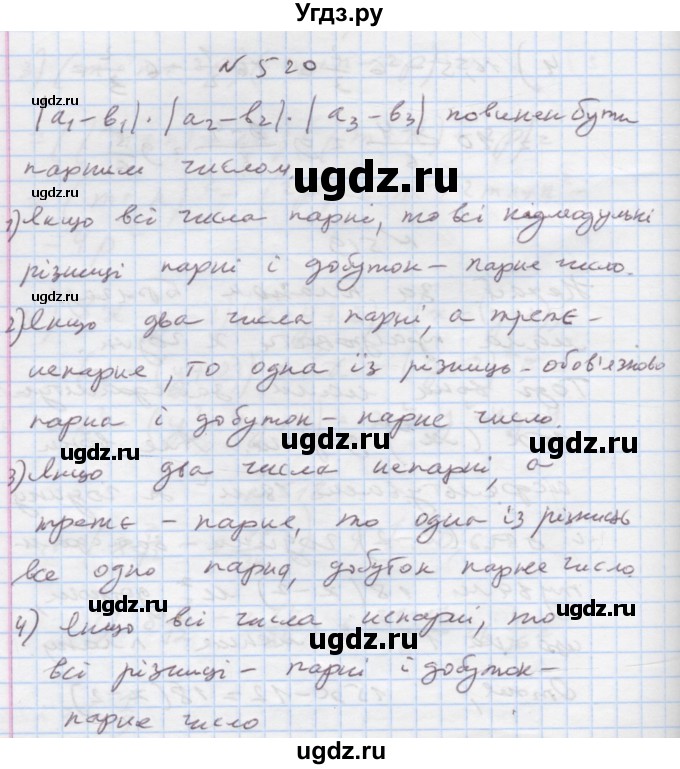 Угдз.ру
N 520
|a₁-b₁|·|a₂-b₂|·|a₃-b₃| повинен бути
парним числом.
1) Якщо всі числа парні, то всі підмодульні
різниці парні і добуток - парне число.
2) Якщо два числа парні, а третє -
непарне, то одна із різниць - обов'язково
парна і добуток - парне число.
3) Якщо два числа непарні, а
третє - парне, то одна із різниць
все одно парна, добуток парне число.
4) Якщо всі числа непарні, то
всі різниці - парні і добуток -
парне число
ugdz.ru
ugdz.ru
ugdz.ru
ugdz.ru
ugdz.ru
ugdz.ru
ugdz.ru
ugdz.ru
ugdz.ru
ugdz.ru
ugdz.ru
ugdz.ru